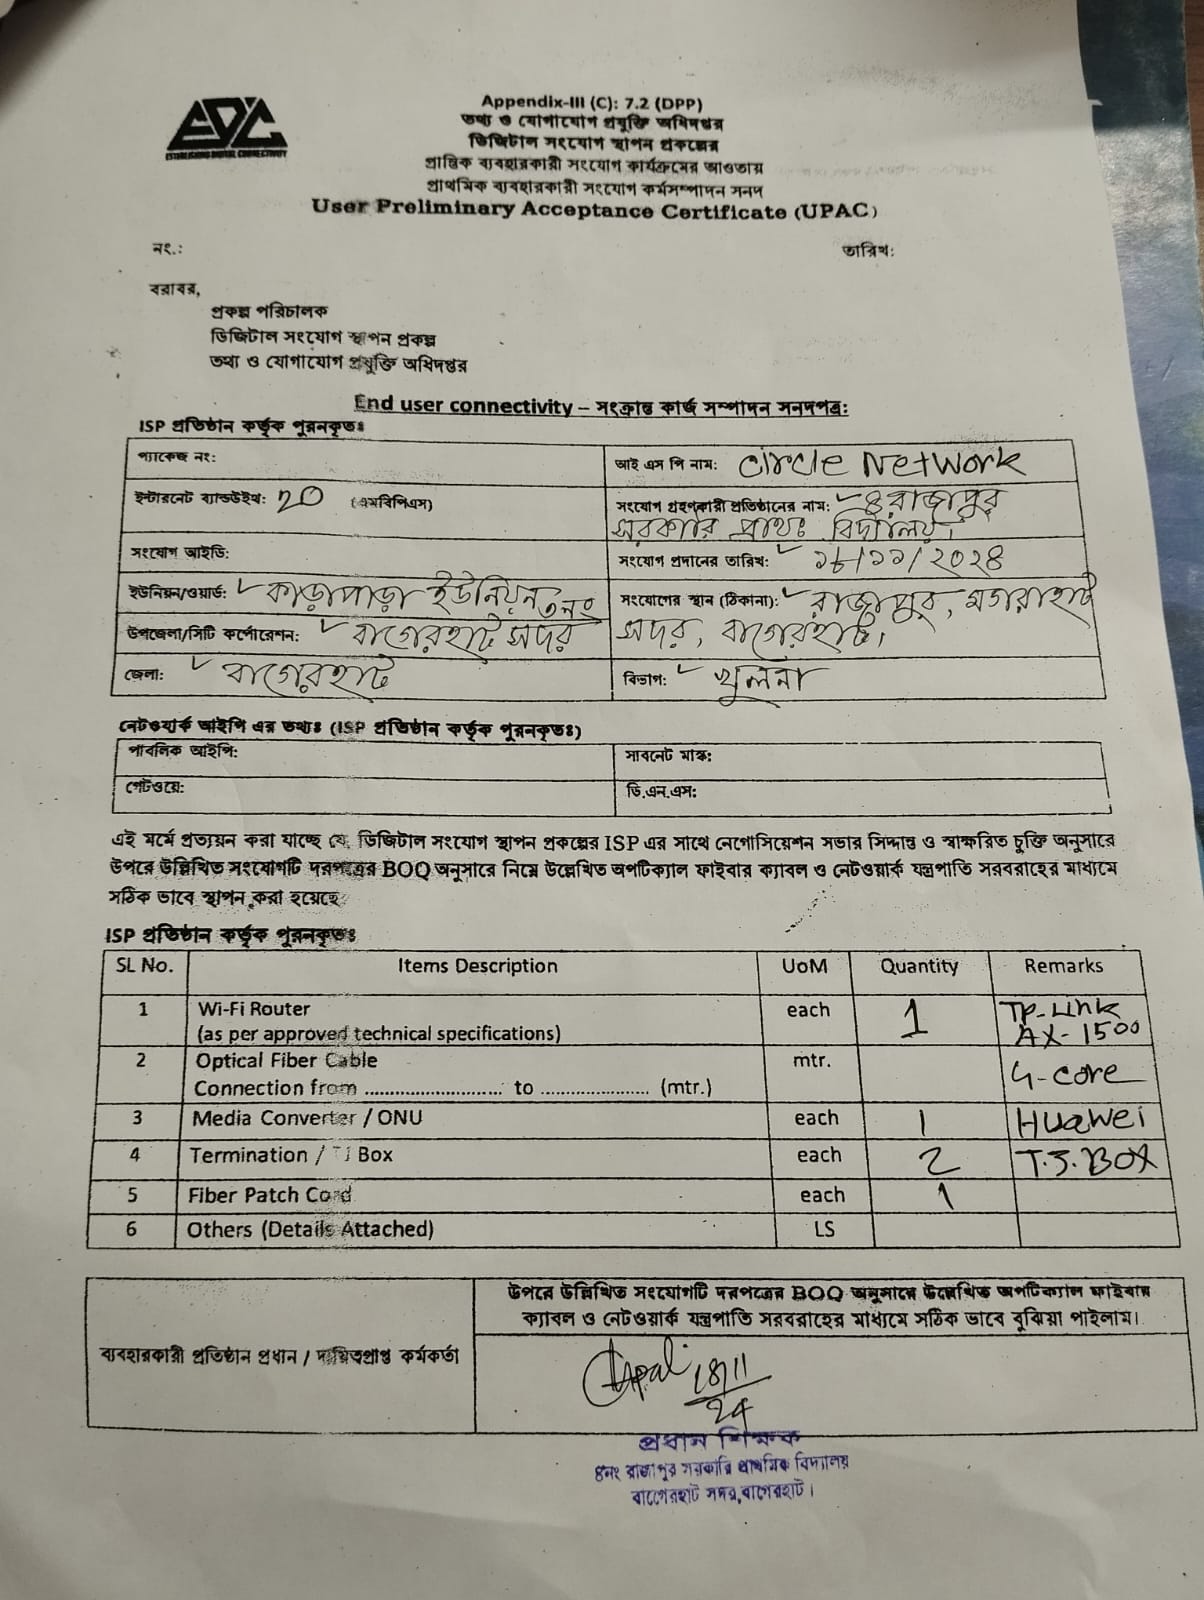 EDC
ESTABLISHING DIGITAL CONNECTIVITY
Appendix-III (C): 7.2 (DPP)
তথ্য ও যোগাযোগ প্রযুক্তি অধিদপ্তর
ডিজিটাল সংযোগ স্থাপন প্রকল্পের
প্রান্তিক ব্যবহারকারী সংযোগ কার্যক্রমের আওতায়
প্রাথমিক ব্যবহারকারী সংযোগ কর্মসম্পাদন সনদ
User Preliminary Acceptance Certificate (UPAC)
নং.: তারিখ:
বরাবর,
প্রকল্প পরিচালক
ডিজিটাল সংযোগ স্থাপন প্রকল্প
তথ্য ও যোগাযোগ প্রযুক্তি অধিদপ্তর
End user connectivity – সংক্রান্ত কার্জ সম্পাদন সনদপত্র:
ISP প্রতিষ্ঠান কর্তৃক পুরনকৃতঃ
প্যাকেজ নং: আই এস পি নাম: Circle Network
ইন্টারনেট ব্যান্ডউইথ: 20 (এমবিপিএস) সংযোগ গ্রহণকারী প্রতিষ্ঠানের নাম: ৪ রাজাপুর
সরকারি প্রাথঃ বিদ্যালয়।
সংযোগ আইডি: সংযোগ প্রদানের তারিখ: ১৮/১১/২০২৪
ইউনিয়ন/ওয়ার্ড: কাড়াপাড়া ইউনিয়ন ৩নং সংযোগের স্থান (ঠিকানা): রাজাপুর, মগরাহাট
উপজেলা/সিটি কর্পোরেশন: বাগেরহাট সদর সদর, বাগেরহাট।
জেলা: বাগেরহাট বিভাগ: খুলনা
নেটওয়ার্ক আইপি এর তথ্যঃ (ISP প্রতিষ্ঠান কর্তৃক পুরনকৃতঃ)
পাবলিক আইপি: সাবনেট মাস্ক:
গেটওয়ে: ডি.এন.এস:
এই মর্মে প্রত্যয়ন করা যাচ্ছে যে, ডিজিটাল সংযোগ স্থাপন প্রকল্পের ISP এর সাথে নেগোসিয়েশন সভার সিদ্দান্ত ও স্বাক্ষরিত চুক্তি অনুসারে
উপরে উল্লিখিত সংযোগটি দরপত্রের BOQ অনুসারে নিম্নে উল্লেখিত অপটিক্যাল ফাইবার ক্যাবল ও নেটওয়ার্ক যন্ত্রপাতি সরবরাহের মাধ্যমে
সঠিক ভাবে স্থাপন করা হয়েছে
ISP প্রতিষ্ঠান কর্তৃক পুরনকৃতঃ
SL No. Items Description UoM Quantity Remarks
1 Wi-Fi Router each 1 TP-Link
(as per approved technical specifications) AX-1500
2 Optical Fiber Cable mtr. 4-core
Connection from ........................... to ..................... (mtr.)
3 Media Converter / ONU each 1 Huawei
4 Termination / TJ Box each 2 T.J.BOX
5 Fiber Patch Cord each 1
6 Others (Details Attached) LS
উপরে উল্লিখিত সংযোগটি দরপত্রের BOQ অনুসারে উল্লেখিত অপটিক্যাল ফাইবার
ক্যাবল ও নেটওয়ার্ক যন্ত্রপাতি সরবরাহের মাধ্যমে সঠিক ভাবে বুঝিয়া পাইলাম।
ব্যবহারকারী প্রতিষ্ঠান প্রধান / দায়িত্বপ্রাপ্ত কর্মকর্তা
18/11/24
প্রধান শিক্ষক
৪নং রাজাপুর সরকারি প্রাথমিক বিদ্যালয়
বাগেরহাট সদর, বাগেরহাট।